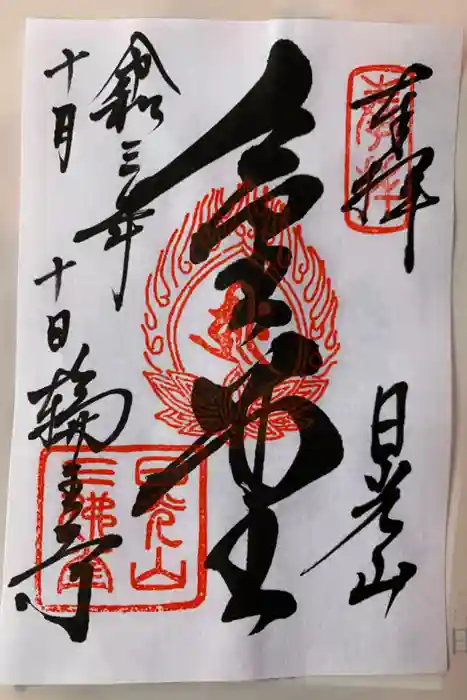 奉拝
日光山
金堂
令和三年
十月
十日
輪王寺
日光山
三佛堂